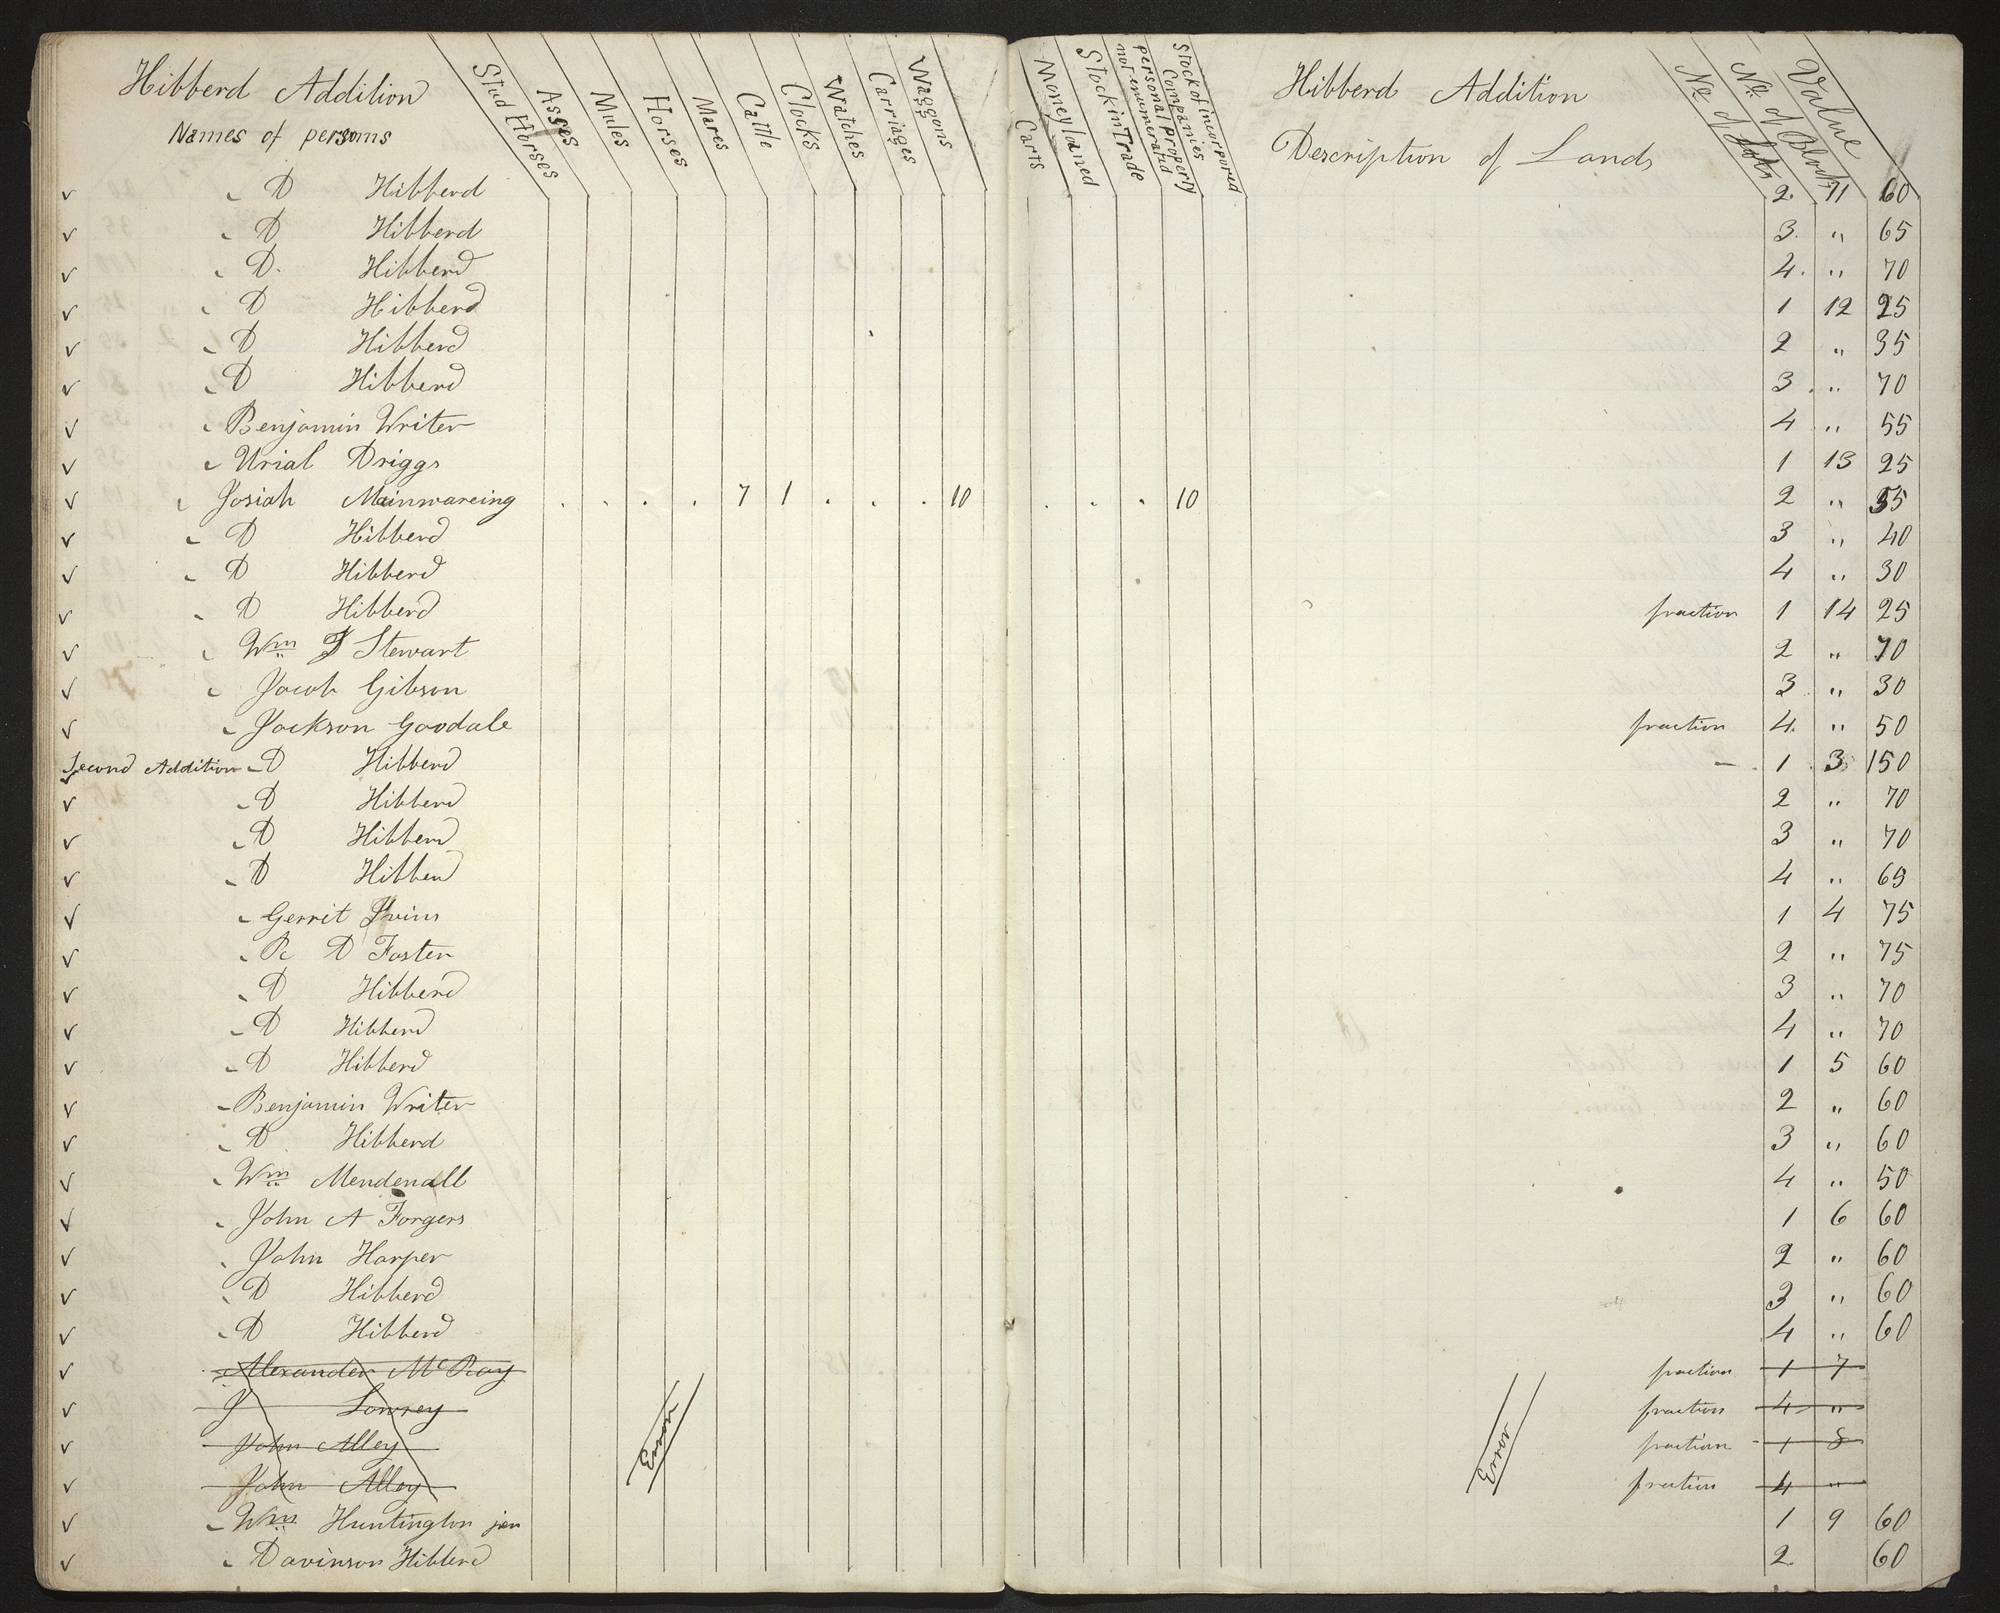 Hibberd Addition
Names of persons
Stud Horses
Asses
Mules
Horses
Mares
Cattle
Clocks
Watches
Carriages
Waggons
Carts
Money loaned
Stock in Trade
personal property not enumerated
Stock of Incorpored Companies
Hibberd Addition
Description of Lands
No. of Lots
No. of Block
Value
D Hibberd 2 11 60
D Hibberd 3 " 65
D. Hibberd 4 " 70
D Hibberd 1 12 25
D Hibberd 2 " 35
D Hibberd 3 " 70
Benjamin Writer 4 " 55
Urial Driggs 1 13 25
Josiah Mainwareing 7 1 10 10 2 " 55
D Hibberd 3 " 40
D Hibberd 4 " 30
D Hibberd fraction 1 14 25
Wm Stewart 2 " 70
Jacob Gibson 3 " 30
Jackson Goodale fraction 4 " 50
Second Addition D Hibberd 1 3 150
D Hibberd 2 " 70
D Hibberd 3 " 70
D Hibberd 4 " 65
Gerrit Ivins 1 4 75
R D Foster 2 " 75
D Hibberd 3 " 70
D Hibberd 4 " 70
D Hibberd 1 5 60
Benjamin Writer 2 " 60
D Hibberd 3 " 60
Wm Mendenall 4 " 50
John A Forgers 1 6 60
John Harper 2 " 60
D Hibberd 3 " 60
D Hibberd 4 " 60
Alexander McRay fraction 1 7
J Lowrey fraction 4 "
John Alley Error Error fraction 1 8
John Alley fraction 4 "
Wm Huntington jun 1 9 60
Davinson Hibberd 2. 60